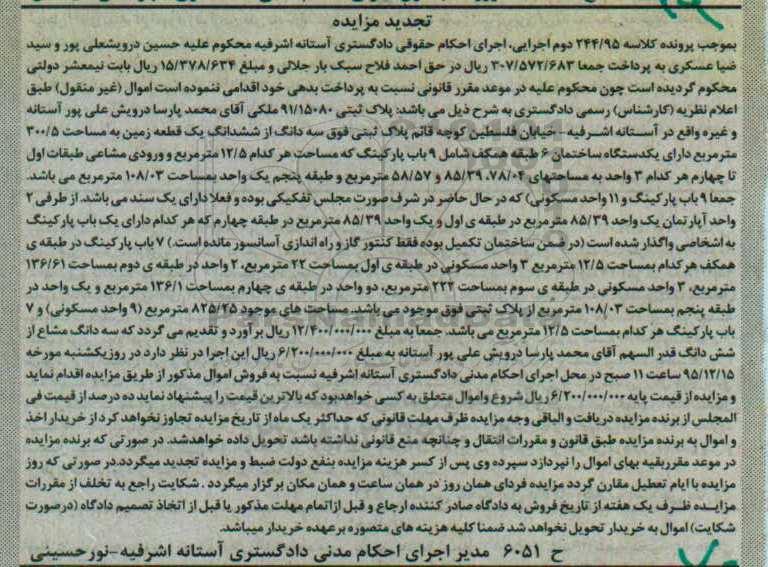 تجدید مزایده
بموجب پرونده کلاسه ۲۴۴/۹۵ دوم اجرایی، اجرای احکام حقوقی دادگستری آستانه اشرفیه محکوم علیه حسین درویشعلی پور و سید
ضیا عسکری به پرداخت جمعا ۳۰۷/۵۷۲/۶۸۳ ریال در حق احمد فلاح سبک بار جلالی و مبلغ ۱۵/۳۷۸/۶۳۴ ریال بابت نیمعشر دولتی
محکوم گردیده است چون محکوم علیه در موعد مقرر قانونی نسبت به پرداخت بدهی خود اقدامی ننموده است اموال (غیر منقول) طبق
اعلام نظریه (کارشناس) رسمی دادگستری به شرح ذیل می باشد: پلاک ثبتی ۹۱/۱۵۰۸۰ ملکی آقای محمد پارسا درویش علی پور آستانه
و غیره واقع در آستانه اشرفیه - خیابان فلسطین کوچه قائم پلاک ثبتی فوق سه دانگ از ششدانگ یک قطعه زمین به مساحت ۳۰۰/۵
مترمربع دارای یکدستگاه ساختمان ۶ طبقه همکف شامل ۹ باب پارکینگ که مساحت هر کدام ۱۲/۵ مترمربع و ورودی مشاعی طبقات اول
تا چهارم هر کدام ۳ واحد به مساحتهای ۷۸/۰۴، ۸۵/۳۹ و ۵۸/۵۷ مترمربع و طبقه پنجم یک واحد بمساحت ۱۰۸/۰۳ مترمربع می باشد.
جمعا ۹ باب پارکینگ و ۱۱ واحد مسکونی) که در حال حاضر در شرف صورت مجلس تفکیکی بوده و فعلا دارای یک سند می باشد. از طرفی ۲
واحد آپارتمان یک واحد ۸۵/۳۹ مترمربع در طبقه ی اول و یک واحد ۸۵/۳۹ مترمربع در طبقه چهارم که هر کدام دارای یک باب پارکینگ
به اشخاصی واگذار شده است (در ضمن ساختمان تکمیل بوده فقط کنتور گاز و راه اندازی آسانسور مانده است.) ۷ باب پارکینگ در طبقه ی
همکف هر کدام بمساحت ۱۲/۵ مترمربع ۳ واحد مسکونی در طبقه ی اول بمساحت ۲۲ مترمربع، ۲ واحد در طبقه ی دوم بمساحت ۱۳۶/۶۱
مترمربع، ۳ واحد مسکونی در طبقه ی سوم بمساحت ۲۲۲ مترمربع، دو واحد در طبقه ی چهارم بمساحت ۱۳۶/۱ مترمربع و یک واحد در
طبقه پنجم بمساحت ۱۰۸/۰۳ مترمربع از پلاک ثبتی فوق موجود می باشد. مساحت های موجود ۸۲۵/۲۵ مترمربع (۹ واحد مسکونی) و ۷
باب پارکینگ هر کدام بمساحت ۱۲/۵ مترمربع می باشد. جمعا به مبلغ ۱۲/۴۰۰/۰۰۰/۰۰۰ ریال برآورد و تقدیم می گردد که سه دانگ مشاع از
شش دانگ قدر السهم آقای محمد پارسا درویش علی پور آستانه به مبلغ ۶/۲۰۰/۰۰۰/۰۰۰ ریال این اجرا در نظر دارد در روز یکشنبه مورخه
۹۵/۱۲/۱۵ ساعت ۱۱ صبح در محل اجرای احکام مدنی دادگستری آستانه اشرفیه نسبت به فروش اموال مذکور از طریق مزایده اقدام نماید
و مزایده از قیمت پایه ۶/۲۰۰/۰۰۰/۰۰۰ ریال شروع و اموال متعلق به کسی خواهد بود که بالاترین قیمت را پیشنهاد نماید ده درصد از قیمت فی
المجلس از برنده مزایده دریافت و الباقی وجه مزایده ظرف مهلت قانونی که حداکثر یک ماه از تاریخ مزایده تجاوز نخواهد کرد از خریدار اخذ
و اموال به برنده مزایده طبق قانون و مقررات انتقال و چنانچه منع قانونی نداشته باشد تحویل داده خواهد شد. در صورتی که برنده مزایده
در موعد مقرر بقیه بهای اموال را نپردازد سپرده وی پس از کسر هزینه مزایده بنفع دولت ضبط و مزایده تجدید میگردد.در صورتی که روز
مزایده با ایام تعطیل مقارن گردد مزایده فردای همان روز در همان ساعت و همان مکان برگزار میگردد . شکایت راجع به تخلف از مقررات
مزایده ظرف یک هفته از تاریخ فروش به دادگاه صادر کننده ارجاع و قبل از اتمام مهلت مذکور یا قبل از اتخاذ تصمیم دادگاه (درصورت
شکایت) اموال به خریدار تحویل نخواهد شد ضمنا کلیه هزینه های متصوره بر عهده خریدار میباشد.
ح ۶۰۵۱ مدیر اجرای احکام مدنی دادگستری آستانه اشرفیه-نورحسینی